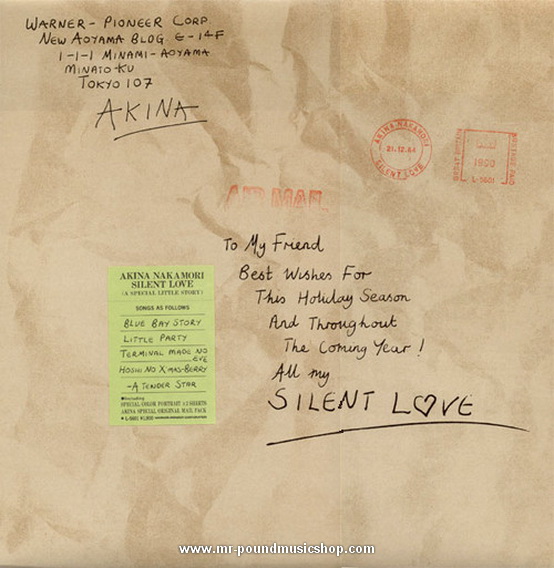 WARNER-PIONEER CORP.
NEW AOYAMA BLDG E-14F
1-1-1 MINAMI-AOYAMA
MINATO-KU
TOKYO 107
AKINA
AKINA NAKAMORI
21.12.84
SILENT LOVE
GREAT BRITAIN
1800
POSTAGE PAID
L-5601
AIR MAIL
To My Friend
Best Wishes For
This Holiday Season
And Throughout
The Coming Year!
All my
SILENT L♡VE
AKINA NAKAMORI
SILENT LOVE
(A SPECIAL LITTLE STORY)
SONGS AS FOLLOWS
BLUE BAY STORY
LITTLE PARTY
TERMINAL MADE NO
EVE
HOSHI NO X'MAS-BERRY
-A TENDER STAR
●Including
SPECIAL COLOR PORTRAIT
AKINA SPECIAL ORIGINAL MAIL PACK
www.mr-poundmusicshop.com